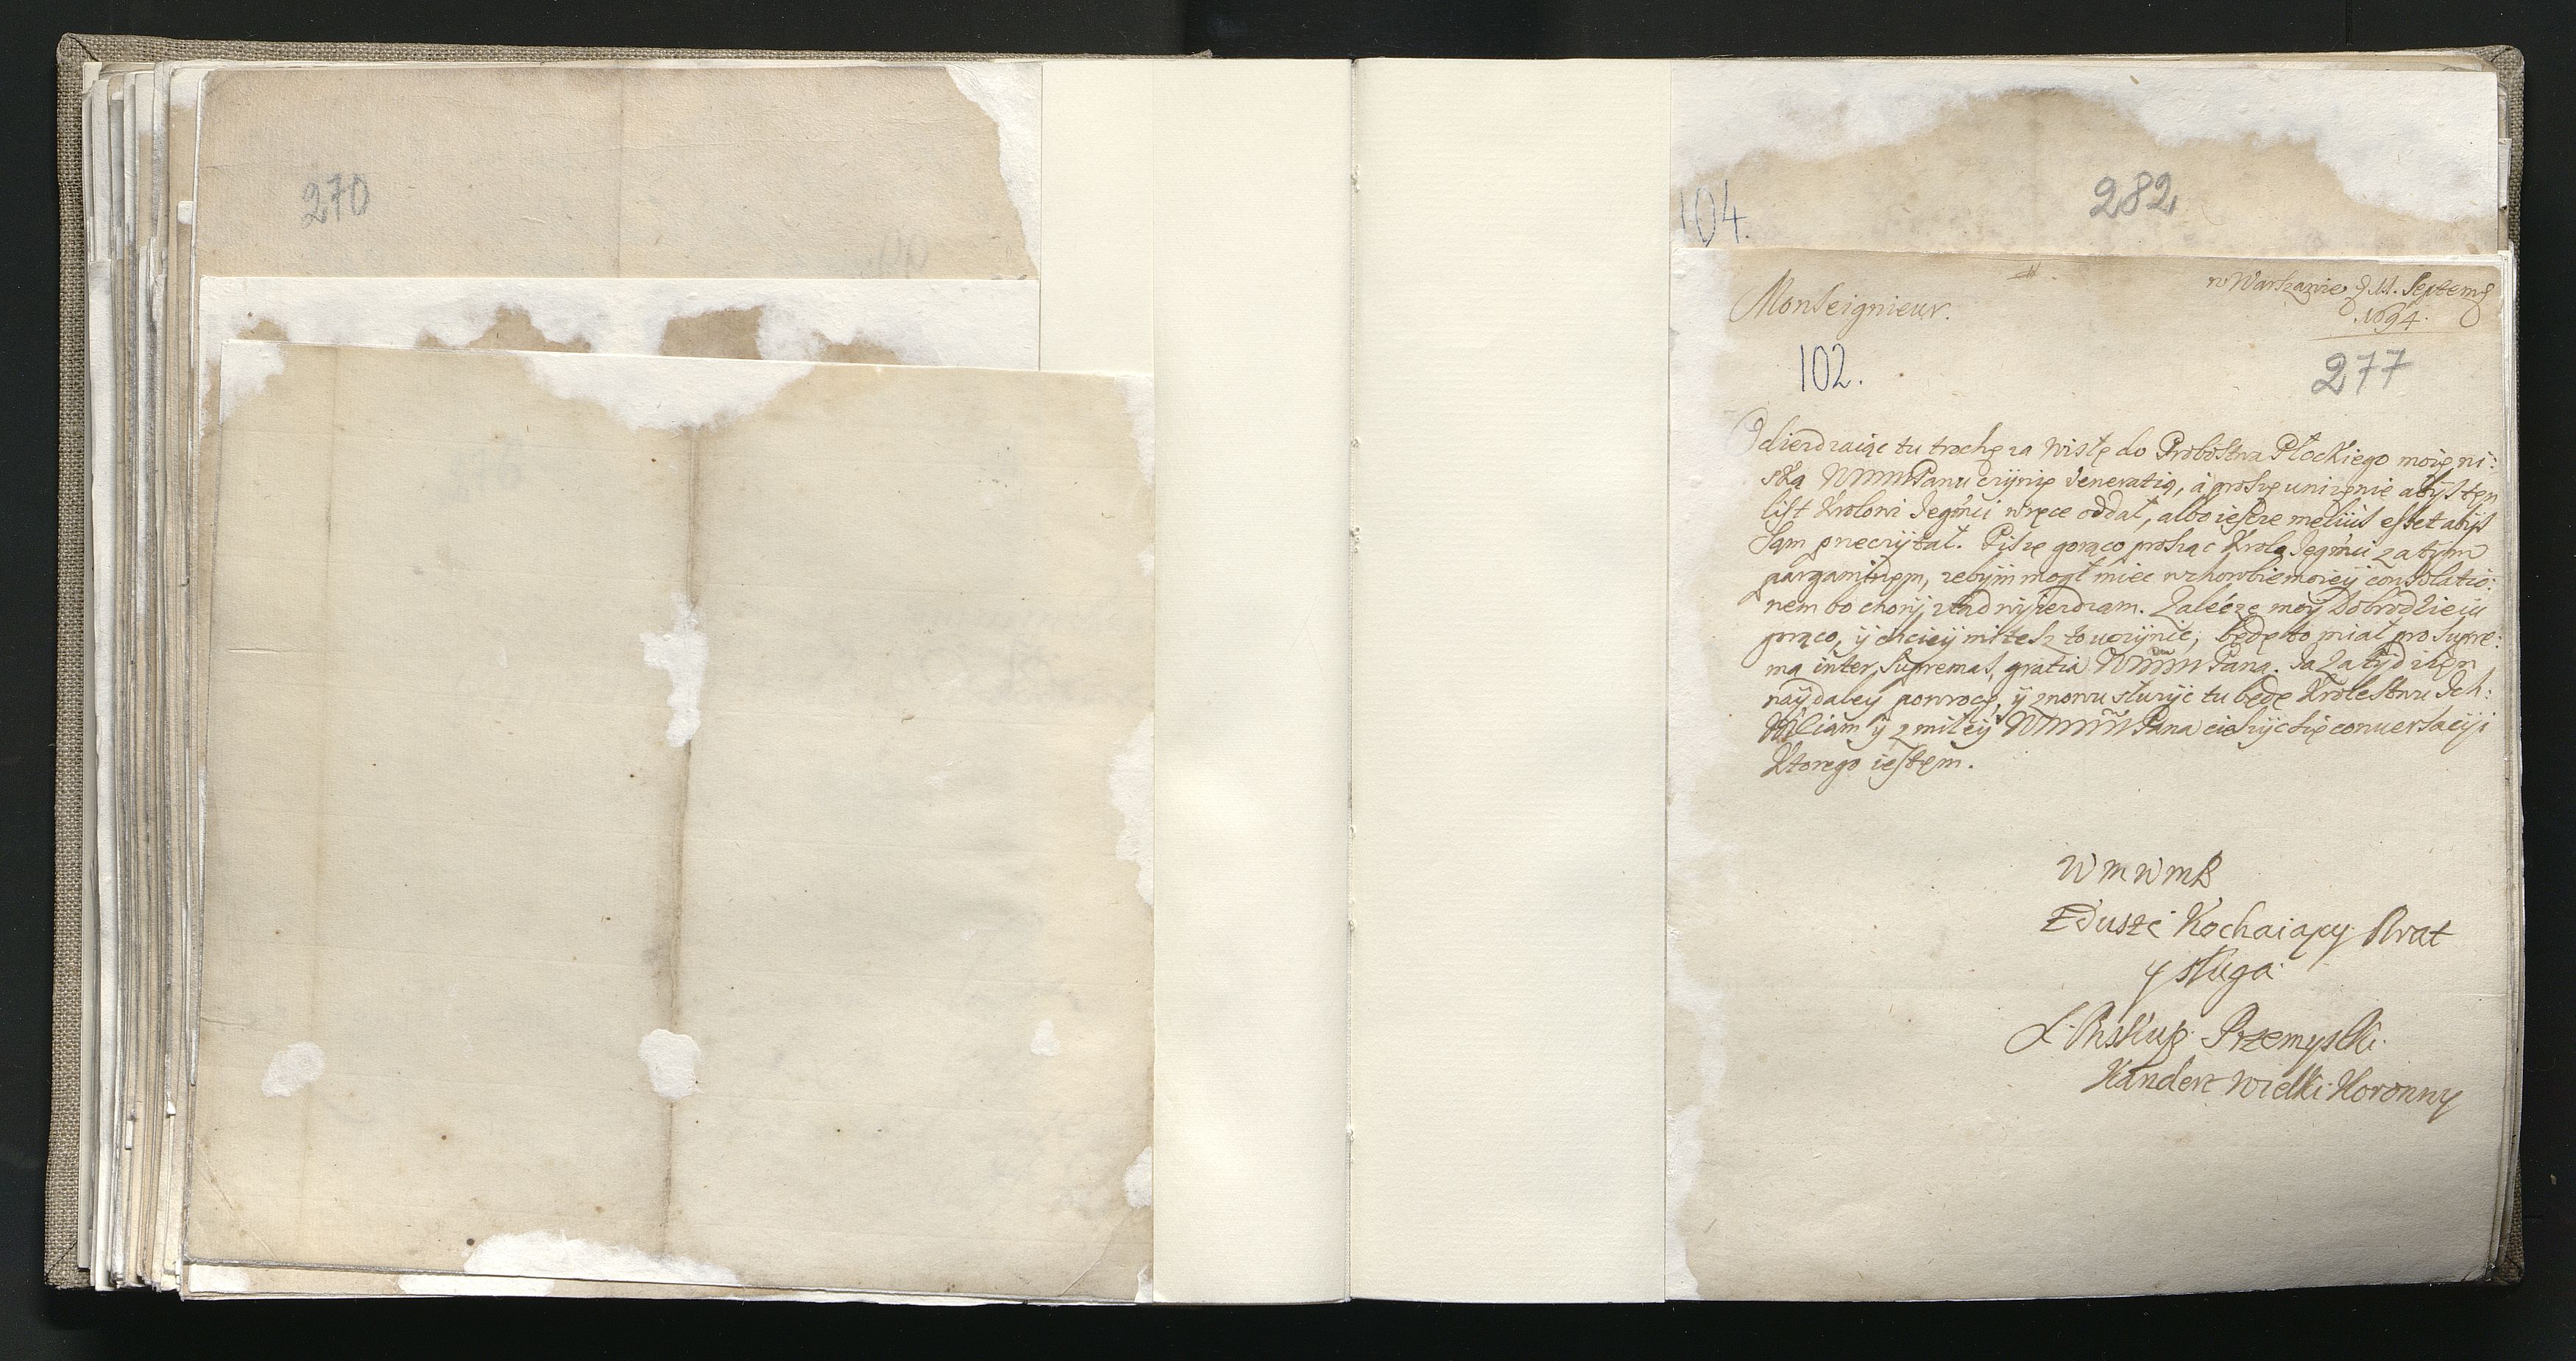 270
104.
282
w Warszawie d 11. Septemb
1694.
Monseignieur.
102.
277
Odierdzaiąc tu trochę za Wisłę do Probostwa Płockiego moię ni:
ską WMMPanu czÿnię Veneratią, á proszę uniżęnie abÿs tęn
list Krolowi Jegmći w ręce oddał, albo iescze melius esset abÿs
Sąm przeczÿtał. Piszę gorąco prosząc Krola Jegmći za tÿm
pargamitnęm, zebÿm mogł miec w chorobie moieÿ consolatio:
nem bo chorÿ ztąd wÿierdzam. Zalécze moÿ Dobrodzieiu
gorąco, ÿ chcieÿ mi tesz to uczÿnić, będę to miał pro supre:
ma inter supremas, gratia WMM Pana. Ja za tÿdzięn
naÿdaleÿ powrocę, ÿ znowu słuzÿc tu będę Krolestwu Ich:
Mściam ÿ z miłéÿ WMM Pana ciesÿc się conuersaciji
Ktorego iestęm.
W M W M P
Z Duszé Kochaiący Brat
y sługa
J. Biskup Przemyslki.
Kanclerz Wielki Koronny